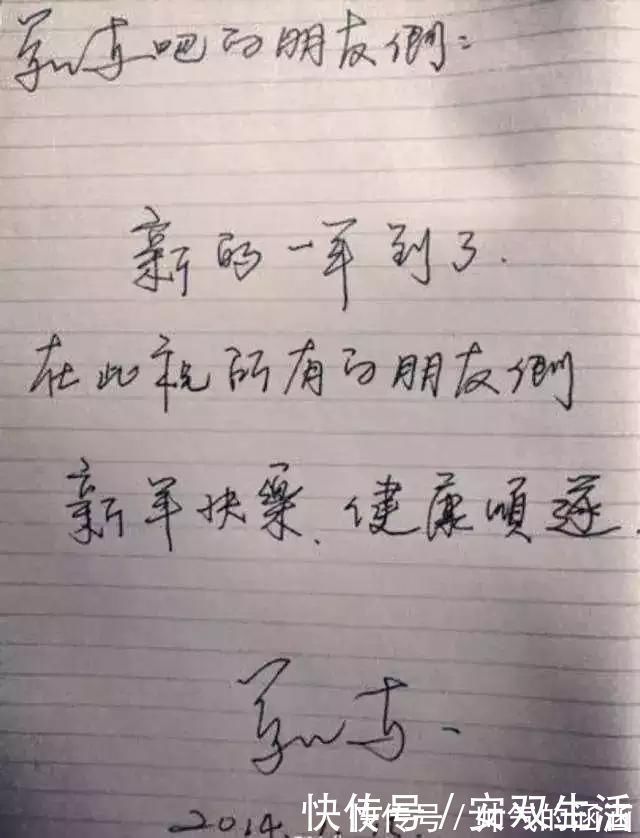 靳东吧的朋友們：
新的一年到了．
在此祝所有的朋友們
新年快樂、健康順遂．
靳东．
2014.
快传号／安双生活